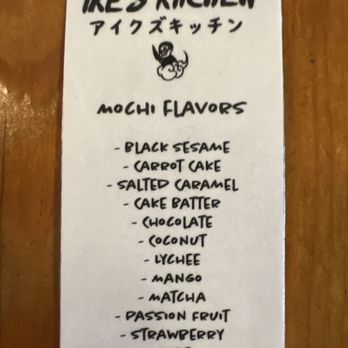 IKE'S KITCHEN
アイクズキッチン
MOCHI FLAVORS
- BLACK SESAME
- CARROT CAKE
- SALTED CARAMEL
- CAKE BATTER
- CHOCOLATE
- COCONUT
- LYCHEE
- MANGO
- MATCHA
- PASSION FRUIT
- STRAWBERRY